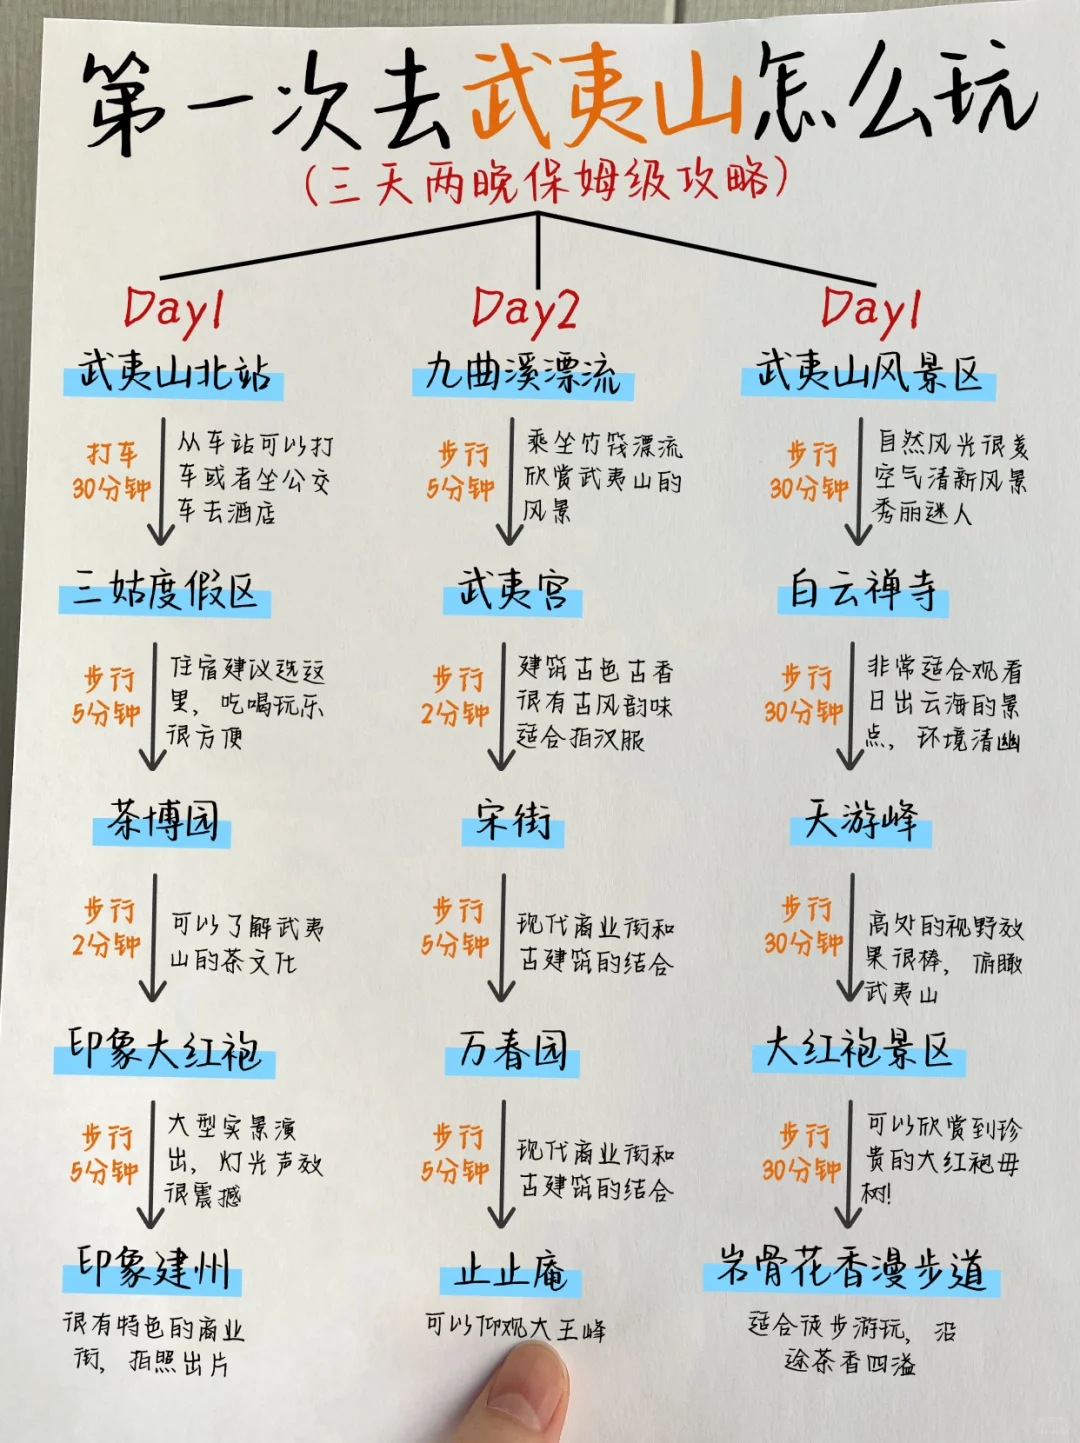 第一次去武夷山怎么玩
(三天两晚保姆级攻略)
Day1
武夷山北站
打车
30分钟
从车站可以打
车或者坐公交
车去酒店
三姑度假区
步行
5分钟
住宿建议选这
里，吃喝玩乐
很方便
茶博园
步行
2分钟
可以了解武夷
山的茶文化
印象大红袍
步行
5分钟
大型实景演
出，灯光声效
很震撼
印象建州
很有特色的商业
街，拍照出片
Day2
九曲溪漂流
步行
5分钟
乘坐竹筏漂流
欣赏武夷山的
风景
武夷宫
步行
2分钟
建筑古色古香
很有古风韵味
适合拍汉服
宋街
步行
5分钟
现代商业街和
古建筑的结合
万春园
步行
5分钟
现代商业街和
古建筑的结合
止止庵
可以仰观大王峰
Day1
武夷山风景区
步行
30分钟
自然风光很美
空气清新风景
秀丽迷人
白云禅寺
步行
30分钟
非常适合观看
日出云海的景
点，环境清幽
天游峰
步行
30分钟
高处的视野效
果很棒，俯瞰
武夷山
大红袍景区
步行
30分钟
可以欣赏到珍
贵的大红袍母
树!
岩骨花香漫步道
适合徒步游玩，沿
途茶香四溢